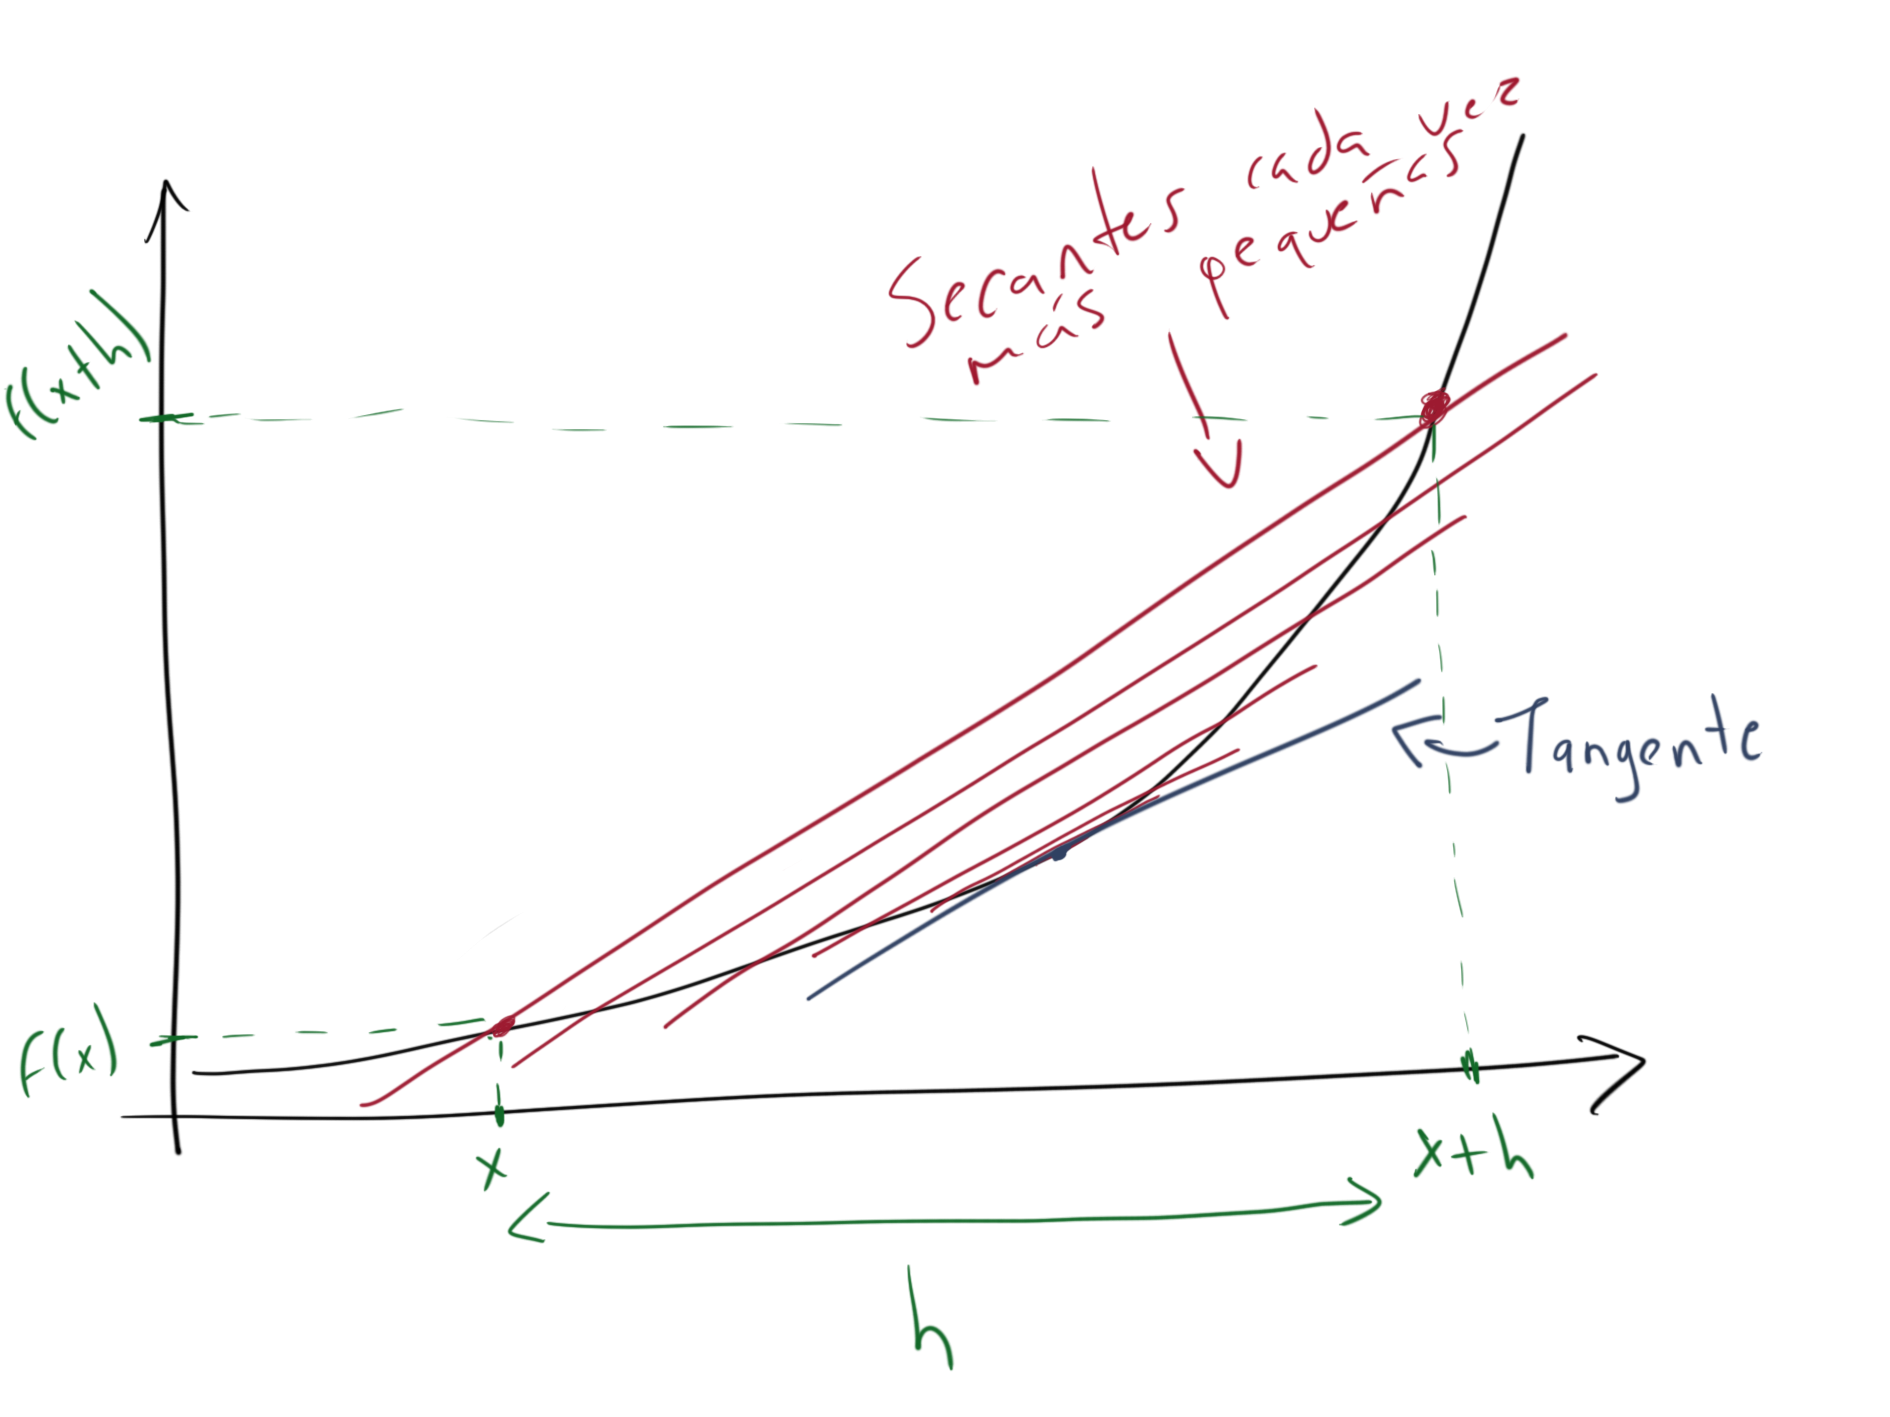 Secantes cada vez
más pequeñas
f(x+h)
Tangente
f(x)
x
x+h
h